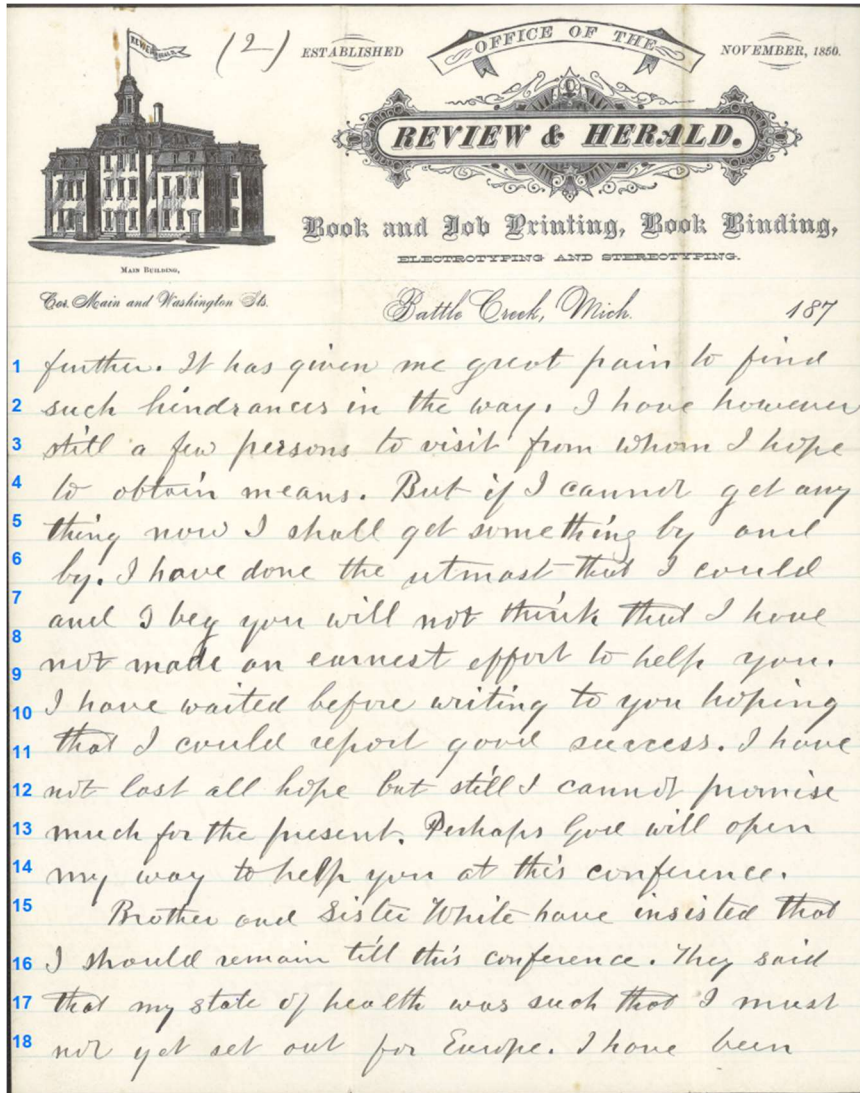 REVIEW & HERALD.
(2)
ESTABLISHED
OFFICE OF THE
NOVEMBER, 1850.
REVIEW & HERALD.
Book and Job Printing, Book Binding,
ELECTROTYPING AND STEREOTYPING.
MAIN BUILDING,
Cor. Main and Washington Sts.
Battle Creek, Mich. 187
1 further. It has given me great pain to find
2 such hindrances in the way. I have however
3 still a few persons to visit from whom I hope
4 to obtain means. But if I cannot get any
5 thing now I shall get something by and
6 by. I have done the utmost that I could
7 and I beg you will not think that I have
8 not made an earnest effort to help you.
9 I have waited before writing to you hoping
10 that I could report good success. I have
11 not lost all hope but still I cannot promise
12 much for the present. Perhaps God will open
13 my way to help you at this conference.
14 Brother and Sister White have insisted that
15 I should remain till this conference. They said
16 that my state of health was such that I must
17 not yet set out for Europe. I have been
18